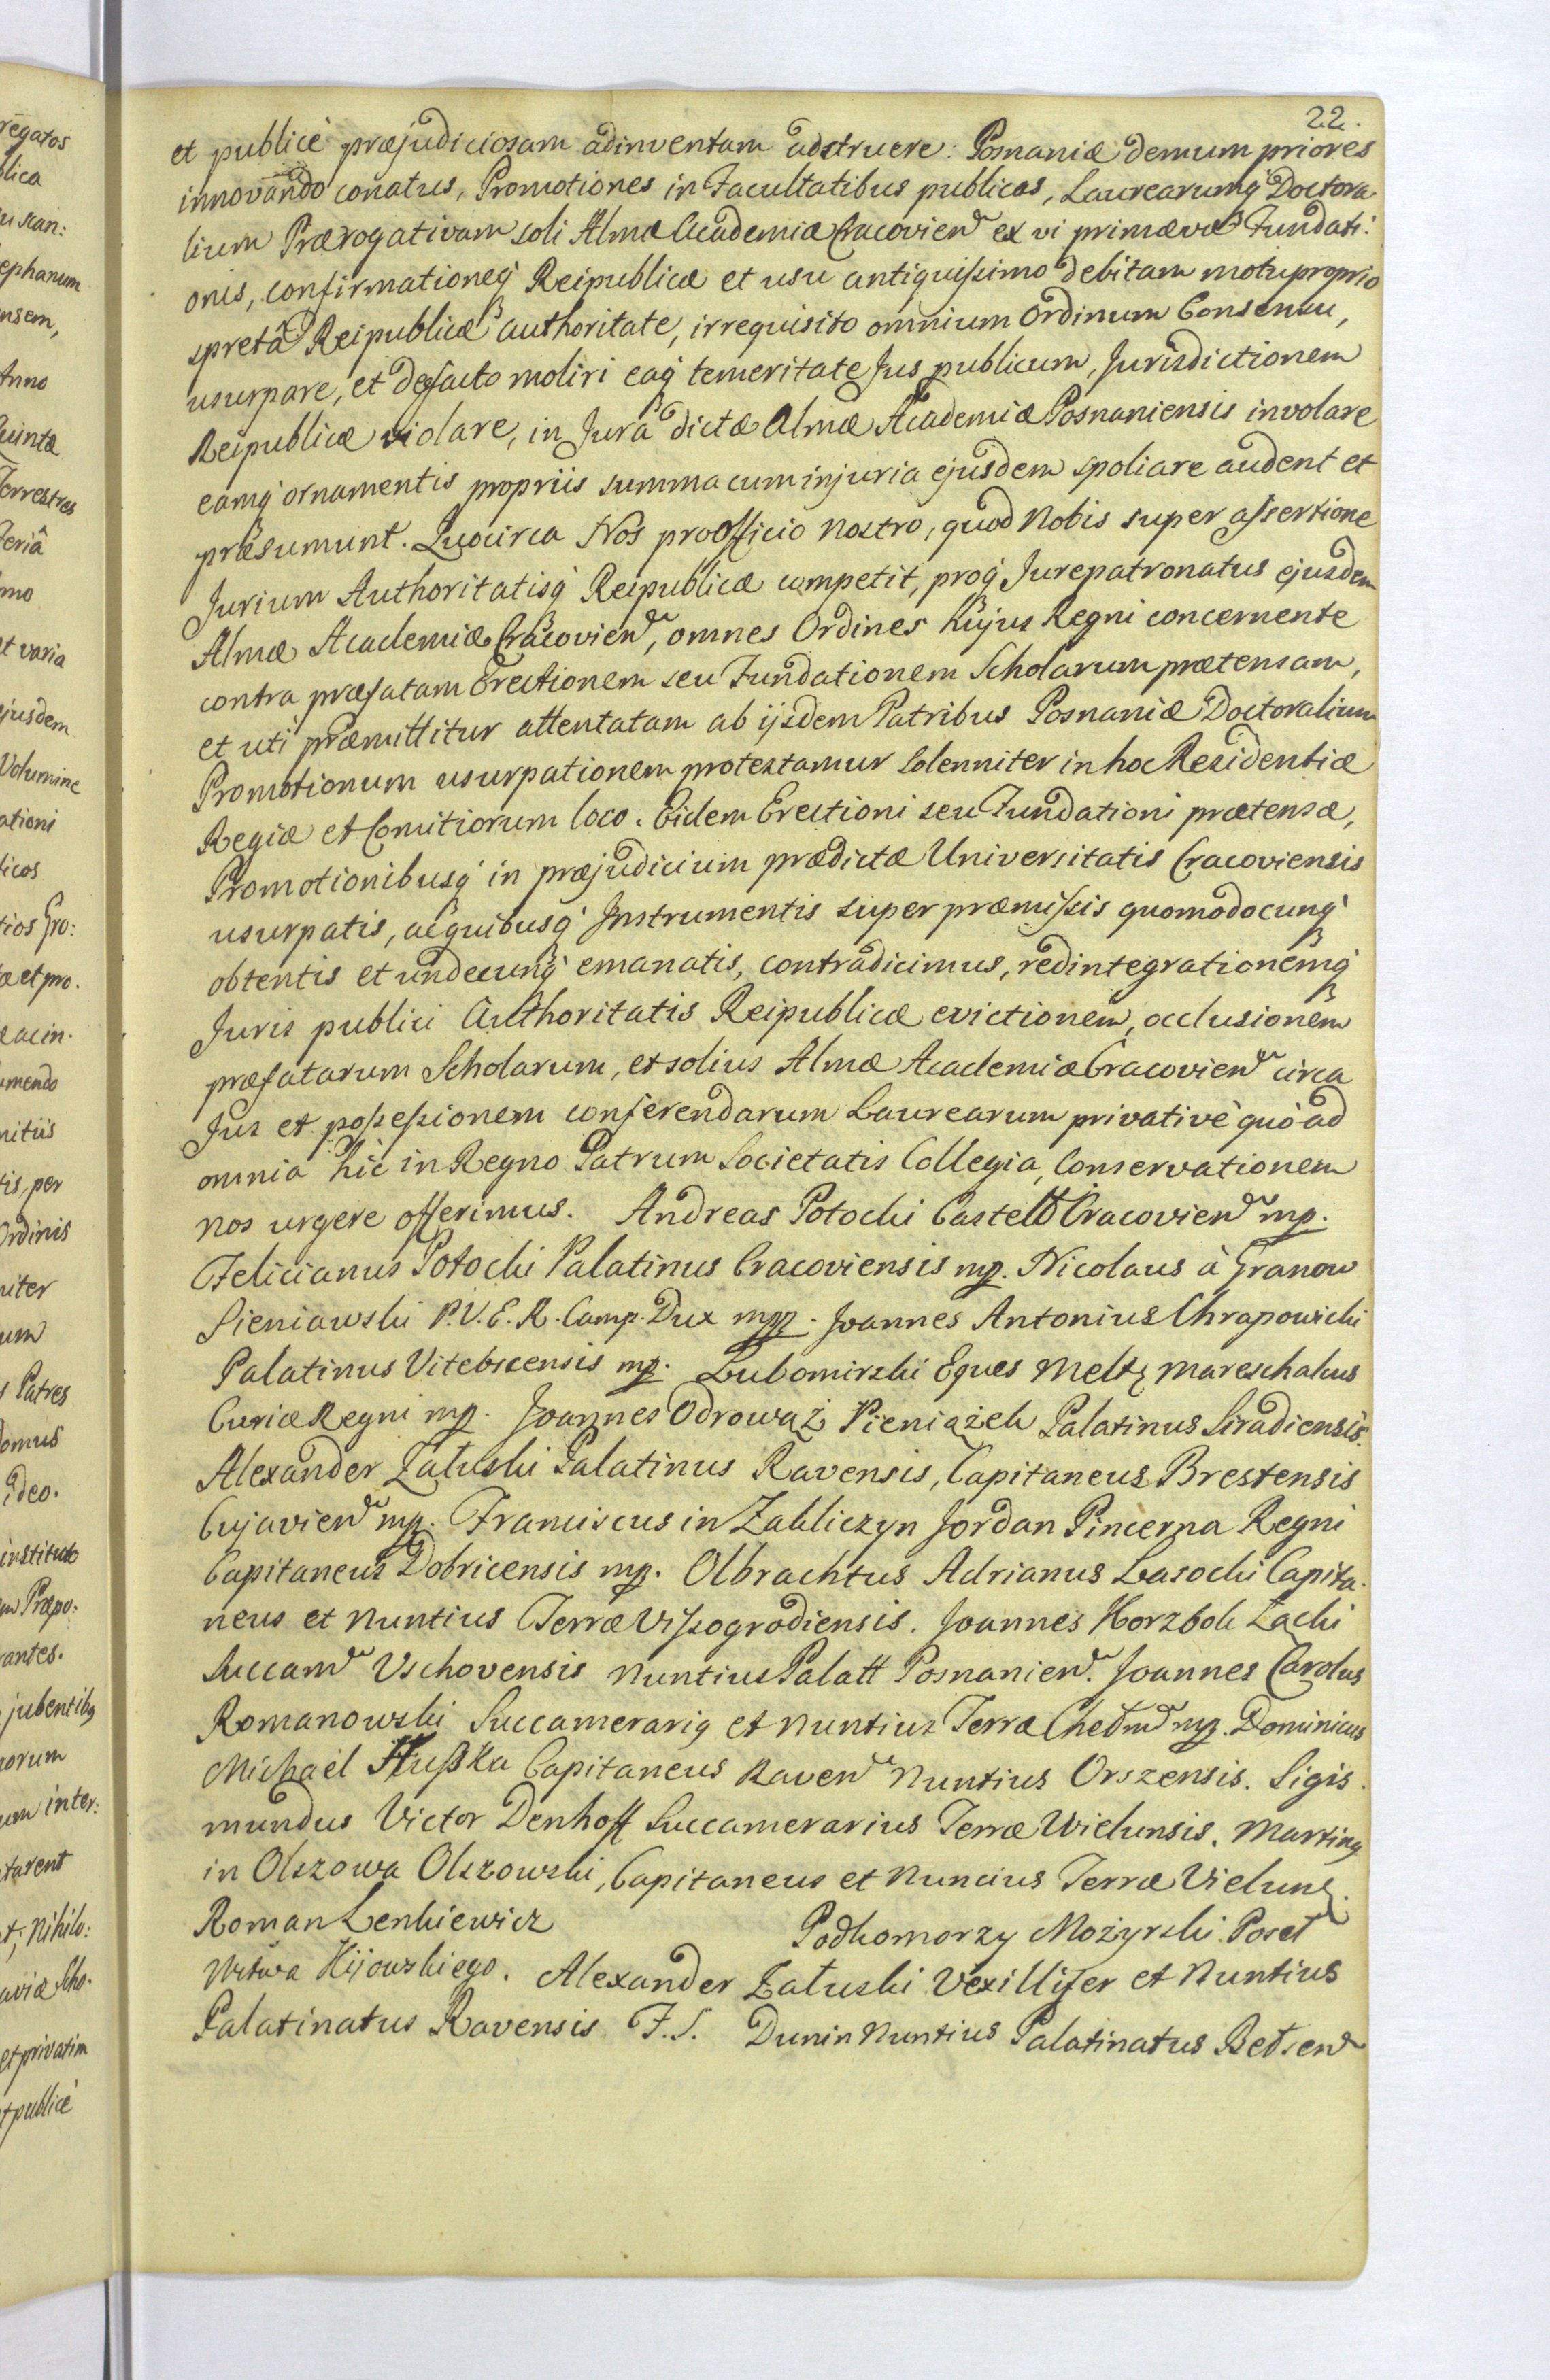 22.
et publicè præjudiciosam adinventam adstruere: Posnaniæ demum priores
innovando conatus, Promotiones in Facultatibus publicas, Laurearumq́ Doctora
lium Prærogativam soli Almæ Academiæ Cracovien ex vi primævæ Fundati:
onis, confirmationeq́ Reipublicæ et usu antiquissimo debitam motu proprio
spretâ Reipublicæ authoritate, irrequisito omnium Ordinum Consensu,
usurpare, et defacto moliri eaq́ temeritate Jus publicum, Jurisdictionem
Reipublicæ violare, in Jura dictæ Almæ Academiæ Posnaniensis involare
eamq́ ornamentis propriis summa cum injuria ejusdem spoliare audent et
præsumunt. Quocirca Nos pro Officio nostro, quod Nobis super assertione
Jurium Authoritatisq́ Reipublicæ competit, proq́ Jurepatronatus ejusdem
Almæ Academiæ Cracovien, omnes Ordines hujus Regni concernente
contra præfatam Erectionem seu Fundationem Scholarum prætensam,
et uti præmittitur attentatam ab ijsdem Patribus Posnaniæ Doctoralium
Promotionum usurpationem protestamur solenniter in hoc Residentiæ
Regiæ et Comitiorum loco. Eidem Erectioni seu Fundationi prætensæ,
Promotionibusq́ in præjudicium prædictæ Universitatis Cracoviensis
usurpatis, acquibusq́ Instrumentis super præmissis quomodocunq́
obtentis et undecunq́ emanatis, contradicimus, redintegrationemq́
Juris publici Authoritatis Reipublicæ evictionem, occlusionem
præfatarum Scholarum, et solius Almæ Academiæ Cracovien circa
Jus et possessionem conferendarum Laurearum privativè quò ad
omnia hic in Regno Patrum Societatis Collegia, Conservationem
nos urgere offerimus. Andreas Potocki Castell Cracovien mp.
Felicianus Potocki Palatinus Cracoviensis mp. Nicolaus à Granow
Sieniawski P.V.E.R. Camp. Dux mpp. Joannes Antonius Chrapowicki
Palatinus Vitebscensis mp. Lubomirski Eques Melt, Mareschalcus
Curiæ Regni mp. Joannes Odrowąż Pieniążek Palatinus Siradiensis.
Alexander Załuski Palatinus Ravensis, Capitaneus Brestensis
Cujavien mp. Franciscus in Zakliczyn Jordan Pincerna Regni
Capitaneus Dobricensis mp. Olbrachtus Adrianus Lasocki Capita
neus et Nuntius Terræ Vissogrodiensis. Joannes Korzbok Łącki
Succam Vschovensis Nuntius Palatt Posnanien. Joannes Carolus
Romanowski Succamerariq et Nuntius Terræ Chełm mp. Dominicus
Michaël Słuszka Capitaneus Raven Nuntius Orszensis. Sigis
mundus Victor Denhoff Succamerarius Terræ Wielunsis. Martinq
in Olszowa Olszowski, Capitaneus et Nuncius Terræ Vielunę.
Roman Lenkiewicz Podkomorzy Możyrski Poseł
Wstwa Kijowskiego. Alexander Załuski Vexillifer et Nuntius
Palatinatus Ravensis F.S. Dunin Nuntius Palatinatus Bełzen